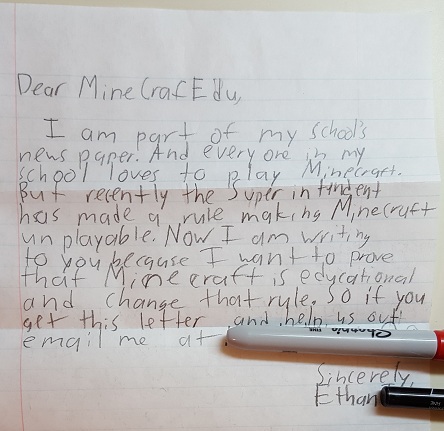 Dear MineCrafEdu,
I am part of my school's
news paper. And every one in my
school loves to play Minecraft.
But recently the Super in tindent
has made a rule making Minecraft
un playable. Now I am writing
to you because I want to prove
that Minecraft is educational
and change that rule. So if you
get this letter and help us out
email me at
Sharpie
FINE
Sincerely,
Ethan